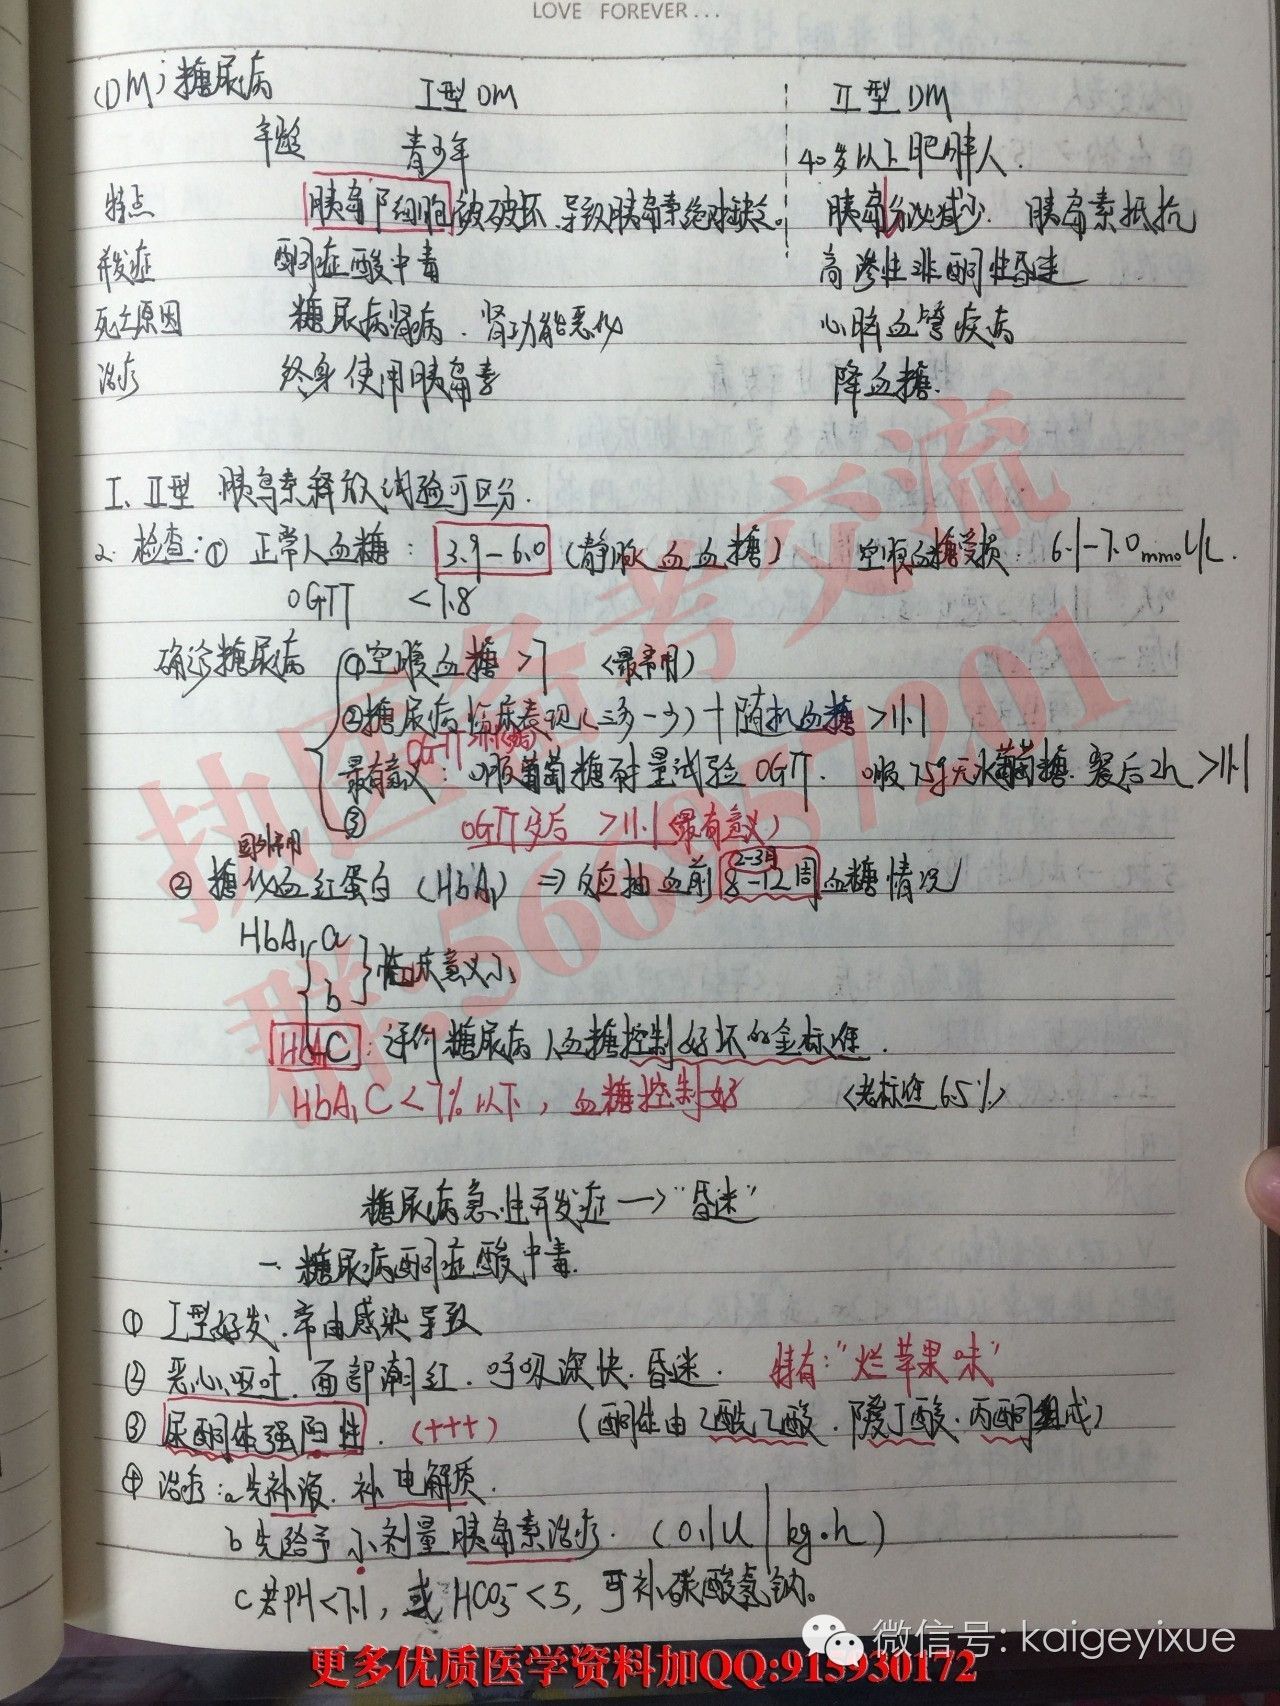 LOVE FOREVER...
(DM) 糖尿病 I型DM II型DM
年龄 青少年 40岁以下肥胖人.
特点 胰岛β细胞被破坏.导致胰岛素绝对缺乏。 胰岛分泌减少. 胰岛素抵抗
并发症 酮症酸中毒 高渗性非酮性昏迷
死亡原因 糖尿病肾病.肾功能恶化 心脑血管疾病
治疗 终身使用胰岛素 降血糖.
I、II型 胰岛素释放试验可区分.
2. 检查:① 正常人血糖: 3.9-6.0 (静脉血血糖) 空腹血糖受损: 6.1-7.0mmol/L.
OGTT <7.8
确诊糖尿病 ①空腹血糖>7 (最常用)
②糖尿病临床表现(三多一少)+随机血糖>11.1
OGTT
最有意义:口服葡萄糖耐量试验OGTT. 口服75g无水葡萄糖.餐后2h>11.1
③ OGTT 后>11.1(最有意义)
国外常用 2-3月
② 糖化血红蛋白(HbA₁)⇒反应抽血前8-12周血糖情况
HbA₁ a
b 临床意义小
HbA₁C:评价糖尿病人血糖控制好坏的金标准.
HbA₁C<7%以下,血糖控制好 (老标准6.5%)
糖尿病急性并发症→"昏迷"
一.糖尿病酮症酸中毒.
① I型好发.常由感染导致
② 恶心呕吐.面部潮红.呼吸深快.昏迷. 特有:"烂苹果味"
③ 尿酮体强阳性.(+++) (酮体由乙酰乙酸.β羟丁酸.丙酮组成)
④ 治疗:a先补液.补电解质.
b先给予小剂量胰岛素治疗.(0.1U/kg·h)
c若PH<7.1,或HCO₃⁻<5,可补碳酸氢钠。
执医备考交流
群:566957201
微信号: kaigeyixue
更多优质医学资料加QQ:915930172